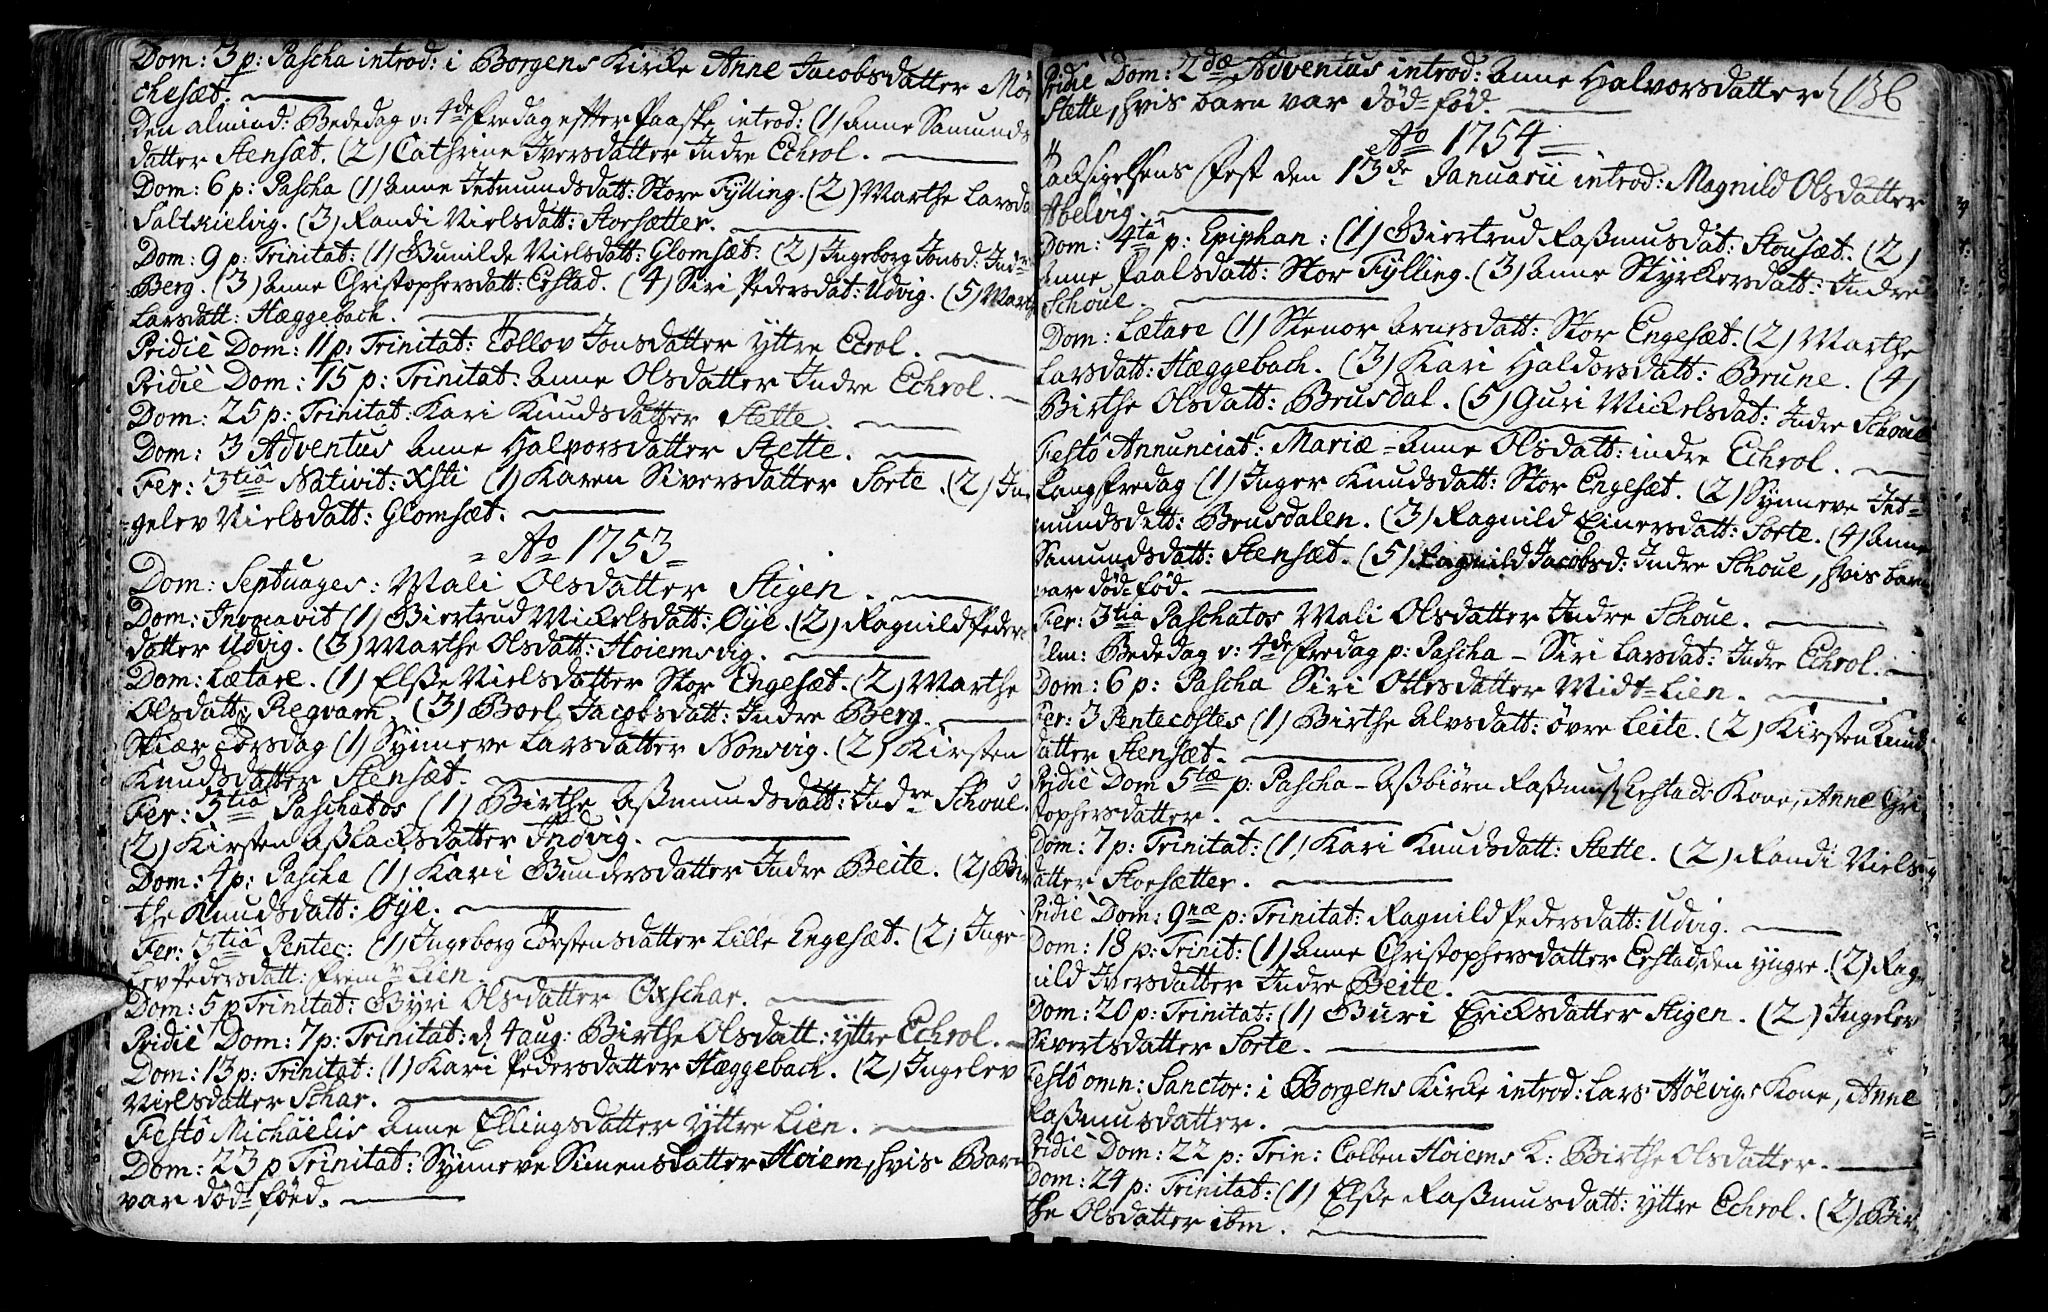 Dom: 3 p: Pascha introd: i Borgens Kirke Anne Jacobsdatter Mö-
chesæt.
Den almind: Bededag v: 4de Fredag effter Paaske introd: (1) Anne Samunds
datter Stensæt. (2) Cathrine Iversdatter Indre Echrol.
Dom: 6 p: Pascha (1) Anne Jetmundsdatt: Store Fylling. (2) Marthe Larsda
Saltkielvig. (3) Randi Nielsdatt: Storsætter.
Dom: 9 p: Trinitat: (1) Gunilde Nielsdatt: Glomsæt. (2) Ingeborg Jonsd: Indre
Berg. (3) Anne Christophersdatt: Erstad. (4) Siri Pedersdat: Udvig. (5) Marthe
Larsdatt: Hæggebach.
Pridiè Dom: 11 p: Trinitat: Tollov Jonsdatter Yttre Ecrol.
Pridiè Dom: 15 p: Trinitat: Anne Olsdatter Indre Echrol.
Dom: 25 p: Trinitat: Kari Knudsdatter Stette.
Dom: 3 Adventus Anne Halvorsdatter Stette.
Fer: 3tiâ Nativit: Xsti (1) Karen Siversdatter Sorte. (2) In-
gelev Nielsdatt: Glomsæt.
= Ao 1753 =
Dom: Septuages: Mali Olsdatter Stigen.
Dom: Invocavit (1) Giertrud Mickelsdatt: Øye. (2) Ragnild Peders
datter Udvig. (3) Marthe Olsdatt: Hoiemsvig.
Dom: Lætare. (1) Elsße Nielsdatter Stor Engesæt. (2) Marthe
Olsdatt: Regvam. (3) Borl Jacobsdatt: Indre Berg.
Skiær Torsdag (1) Synneve Larsdatter Nonsvig. (2) Kirsten
Knudsdatter Stensæt.
Fer: 3tiâ Paschatos (1) Birthe Aßmundsdatt: Indre Schoue.
(2) Kirsten Aßlacksdatter Indvig.
Dom: 4 p: Pascha (1) Kari Gundersdatter Indre Beite. (2) Bir-
the Knudsdatt: Øye.
Fer: 3tiâ Pentec: (1) Ingeborg Torstensdatter Lille Engesæt. (2) Inge-
lev Pedersdatt: Frem Lien.
Dom: 5 p Trinitat: Gyri Olsdatter Oxschar.
Pridiè Dom: 7 p: Trinitat: d 4 aug: Birthe Olsdatt: yttre Echrol.
Dom: 13 p: Trinitat: (1) Kari Pedersdatter Hæggebach. (2) Ingelev
Nielsdatter Schar.
Festô Michaëlis Anne Ellingsdatter Yttre Lien.
Dom: 23 p Trinitat: Synneve Simensdatter Hoiem, hvis Barn
var död-föed.
Pridiè Dom: 2dæ Adventus introd: Anne Halvorsdatter 136
Stette, hvis barn var död-föd.
Ao 1754 =
Tacksigelsens Fest den 13de Januarii introd: Magnild Olsdatter
Abelvig.
Dom: 4tâ p: Epiphan: (1) Giertrud Raßmusdat: Stousæt. (2)
Anne Paalsdatt: Stor Fylling. (3) Anne Styrkersdatt: Indre
Schoue.
Dom: Lætare (1) Stenor Arnesdatt: Stor Engesæt. (2) Marthe
Larsdatt: Hæggebach. (3) Kari Haldorsdatt: Brune. (4)
Birthe Olsdatt: Brusdal. (5) Guri Mickelsdat: Indre Schoue
Festô Annunciat: Mariæ - Anne Olsdatt: indre Echrol.
Langfredag (1) Inger Knudsdatt: Stor Engesæt. (2) Synneve Jet-
mundsdatt: Brusdalen. (3) Ragnild Einersdatt: Sorte. (4) Anne
Samundsdatt: Stensæt. (5) Ragnild Jacobsd: Indre Schoue, hvis barn
var död-föd.
Fer: 3tiâ Paschatos Mali Olsdatter Indre Schoue.
Alm: Bededag v: 4de Fredag p: Pascha - Siri Larsdat: Indre Echrol.
Dom: 6 p: Pascha Siri Ottesdatter Midt-Lien.
Fer: 3 Pentecostes (1) Birthe Alvsdatt: övre Leite. (2) Kirsten Knuds
datter Stensæt.
Pridiè Dom 5tæ p: Pascha - Aßbiörn Raßmuss Erstads Kone, Anne Chri-
stophersdatter.
Dom: 7 p: Trinitat: (1) Kari Knudsdatt: Stette. (2) Randi Niels-
datter Storsætter.
Pridiè Dom: 9næ p: Trinitat: Ragnild Pedersdatt: Udvig.
Dom: 18 p: Trinit: (1) Anne Christophersdatter Erstad, den yngre. (2) Rag-
nild Iversdatter Indre Beite.
Dom: 20 p: Trinitat: (1) Guri Ericksdatter Stigen. (2) Ingelev
Sivertsdatter Sorte.
Festô omn: Sanctor: i Borgens Kirke introd: Lars Höevigs Kone, Anne
Raßmusdatter.
Pridiè Dom: 22 p: Trin: Colben Hoiems K: Birthe Olsdatter.
Dom: 24 p: Trinitat: (1) Elsße Raßmusdatt: yttre Echrol. (2) Bir-
the Olsdatter ibm.